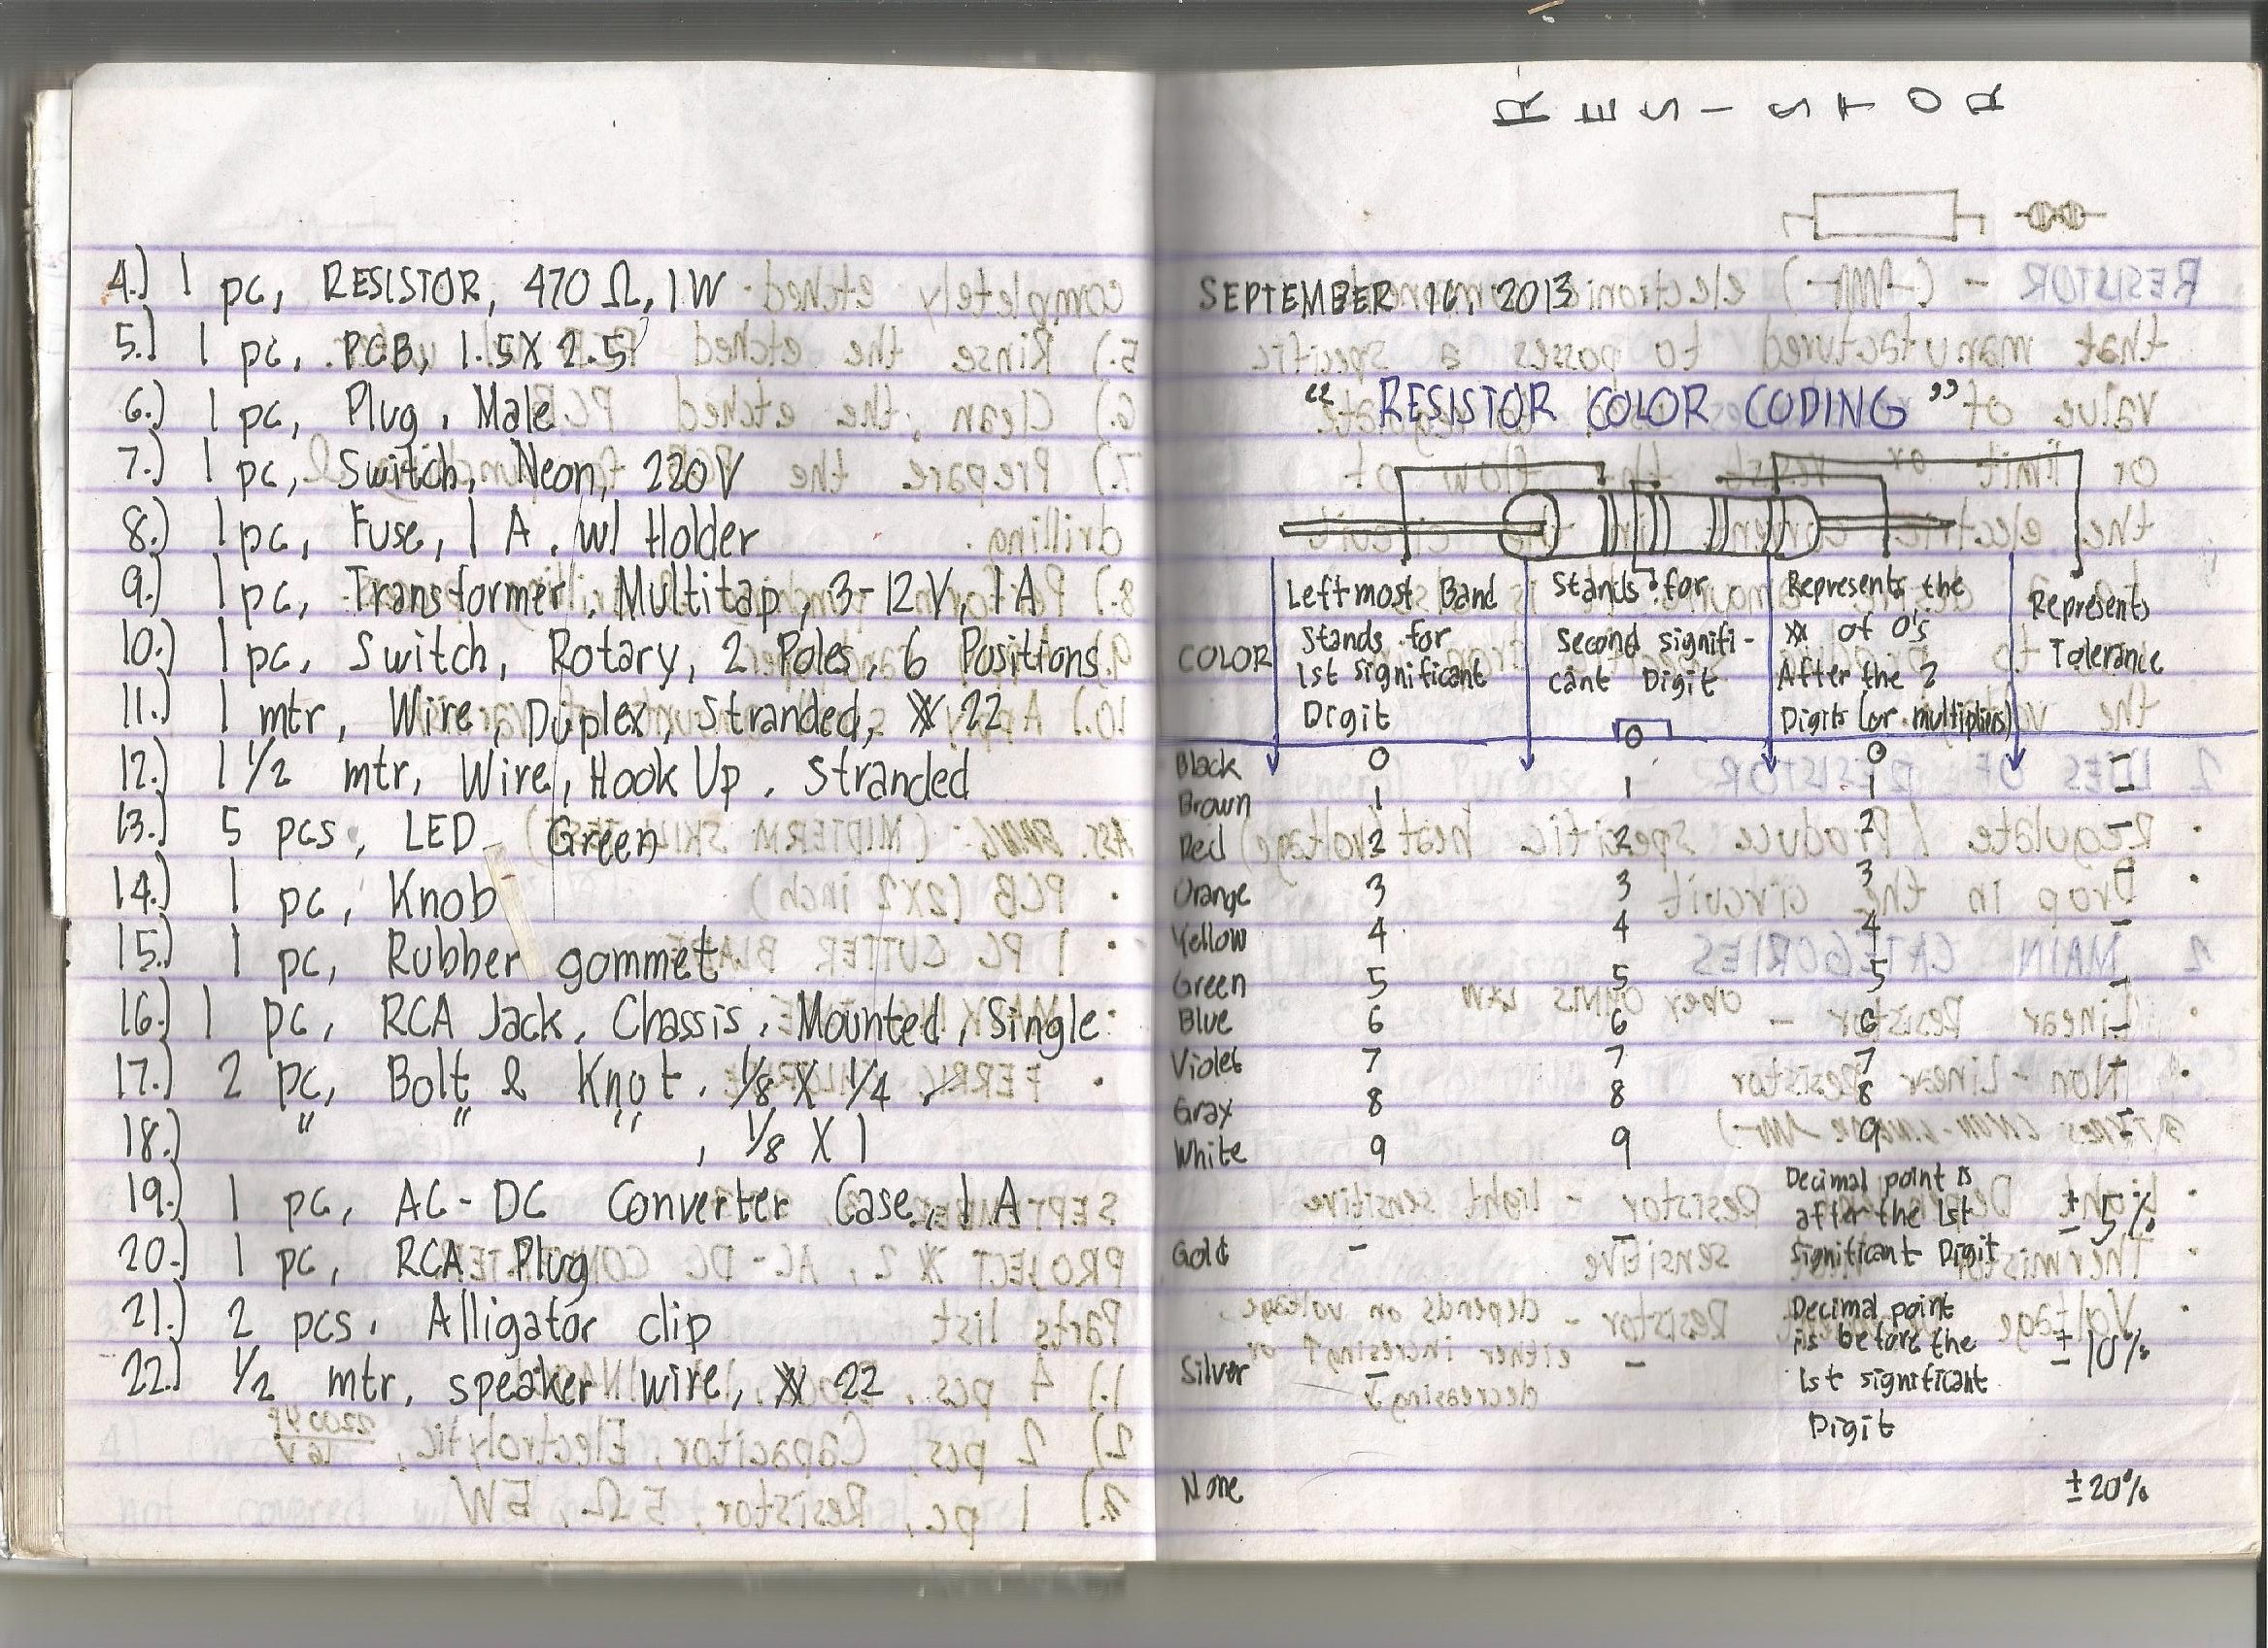 4.) 1 pc, RESISTOR, 470 Ω, 1W
5.) 1 pc, PCB, 1.5 X 2.5
6.) 1 pc, Plug, Male
7.) 1 pc, Switch, Neon, 220V
8.) 1pc, Fuse, 1 A. w/ Holder
9.) 1pc, Transformer, Multitap, 3-12V, 1A
10.) 1pc, Switch, Rotary, 2 Poles, 6 Positions
11.) 1 mtr, Wire, Duplex, Stranded, # 22
12.) 1 1/2 mtr, Wire, Hook Up, Stranded
13.) 5 pcs, LED Green
14.) 1 pc, Knob
15.) 1 pc, Rubber gommet
16.) 1 pc, RCA Jack, Chassis, Mounted, Single
17.) 2 pc, Bolt & Knut, 1/8 X 1/4
18.) " " " , 1/8 X 1
19.) 1 pc, AC-DC Converter Case, 1 A
20.) 1 pc, RCA Plug
21.) 2 pcs, Alligator clip
22.) 1/2 mtr, speaker wire, # 22
RESISTOR
SEPTEMBER 16, 2013
" RESISTOR COLOR CODING "
COLOR
Leftmost Band
Stands for
1st significant
Digit
Stands for
Second signifi-
cant Digit
Represents the
# of 0's
After the 2
Digits (or multipliers)
Represents
Tolerance
Black 0 0 0 -
Brown 1 1 1 -
Red 2 2 2 -
Orange 3 3 3 -
Yellow 4 4 4 -
Green 5 5 5 -
Blue 6 6 6 -
Violet 7 7 7 -
Gray 8 8 8 -
White 9 9 9
Gold - -
Decimal point is
after the 1st
significant Digit
± 5%
Silver - -
Decimal point
is before the
1st significant
Digit
± 10%
None ± 20%